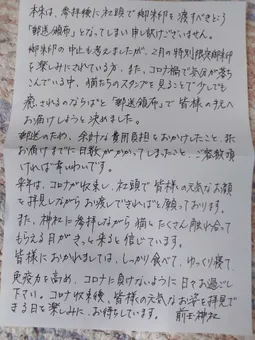 本来は、参拝後に社頭で御朱印を渡すべきところ
「郵送頒布」となってしまい申し訳ございません。
御朱印の中止も考えましたが、2月の特別限定御朱印
を楽しみにされている方、また、コロナ禍で気分が落ち
こんでいる中、猫たちのスタンプを見ることで少しでも
癒されるのならばと「郵送頒布」で皆様の手元へ
お届けしようと決めました。
郵送のため、余計な費用負担をおかけしたこと、また
お届けまでに日数がかかってしまったこと、ご容赦頂
ければ幸いです。
来年は、コロナが収束し、社頭で皆様の元気なお顔
を拝見しながらお渡しできればと願っております。
また、神社に参拝しながら猫とたくさん触れ合って
もらえる日がきっと来ると信じています。
皆様におかれましては、しっかり食べて、ゆっくり寝て、
免疫力を高め、コロナに負けないように日々お過ごし
下さい。コロナ収束後、皆様の元気なお姿を拝見で
きる日を楽しみに、お待ちしています。 前玉神社